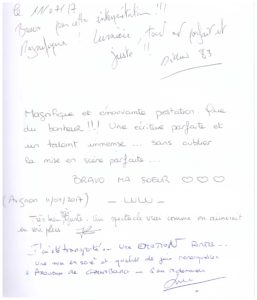 le 11/07/17
Bravo pour cette interprétation !!!
Magnifique ! Lumière, tout est parfait et
juste !!
83
Magnifique et émouvante prestation. Que
du bonheur !!! Une écriture parfaite et
un talent immense ... sans oublier
la mise en scène parfaite ...
BRAVO MA SOEUR ♡♡♡
(Avignon 11/07/2017) - LULU -
Très bon texte. Un spectacle vrai comme on aimerait
en voir plus
J'ai été transporté... une EMOTION
une mise en scène et qualité de jeu remarquable